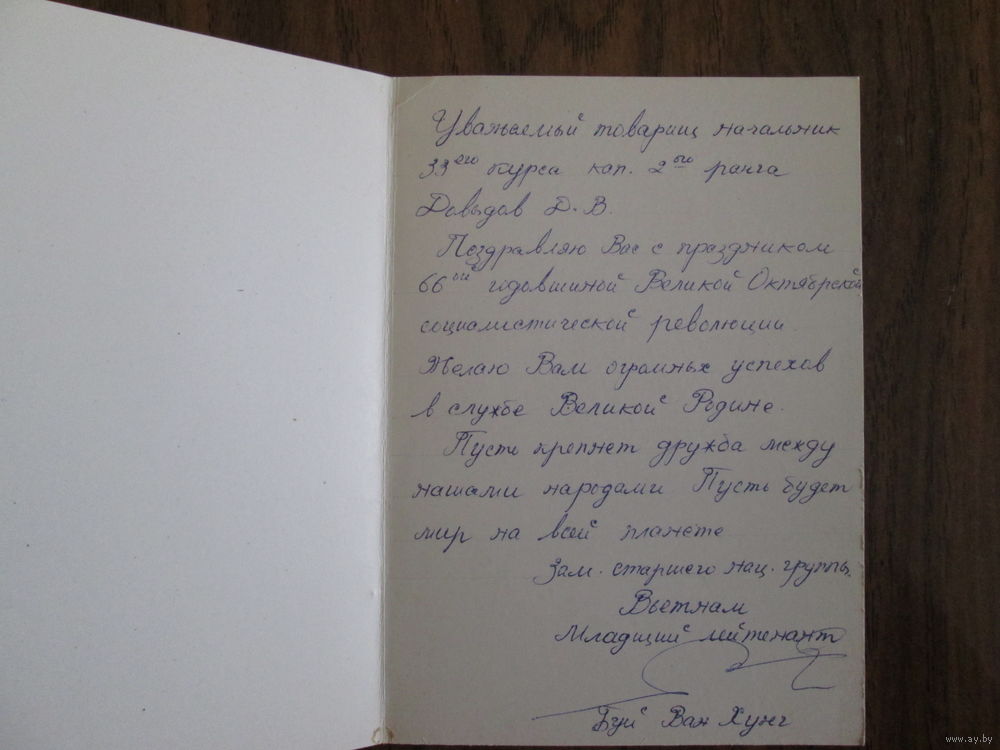 Уважаемый товарищ начальник
33его курса кап. 2ого ранга
Довыдов Д.В.
Поздравляю Вас с праздником
66ой годовшиной Великой Октябрской
социалистической революции.
Желаю Вам огромных успехов
в службе Великой Родине.
Пусть крепнет дружба между
нашами народами. Пусть будет
мир на всей планете
Зам. старшего нац. группы.
Вьетнам
Младщий лейтенант
Буй Ван Хунг
www.ay.by